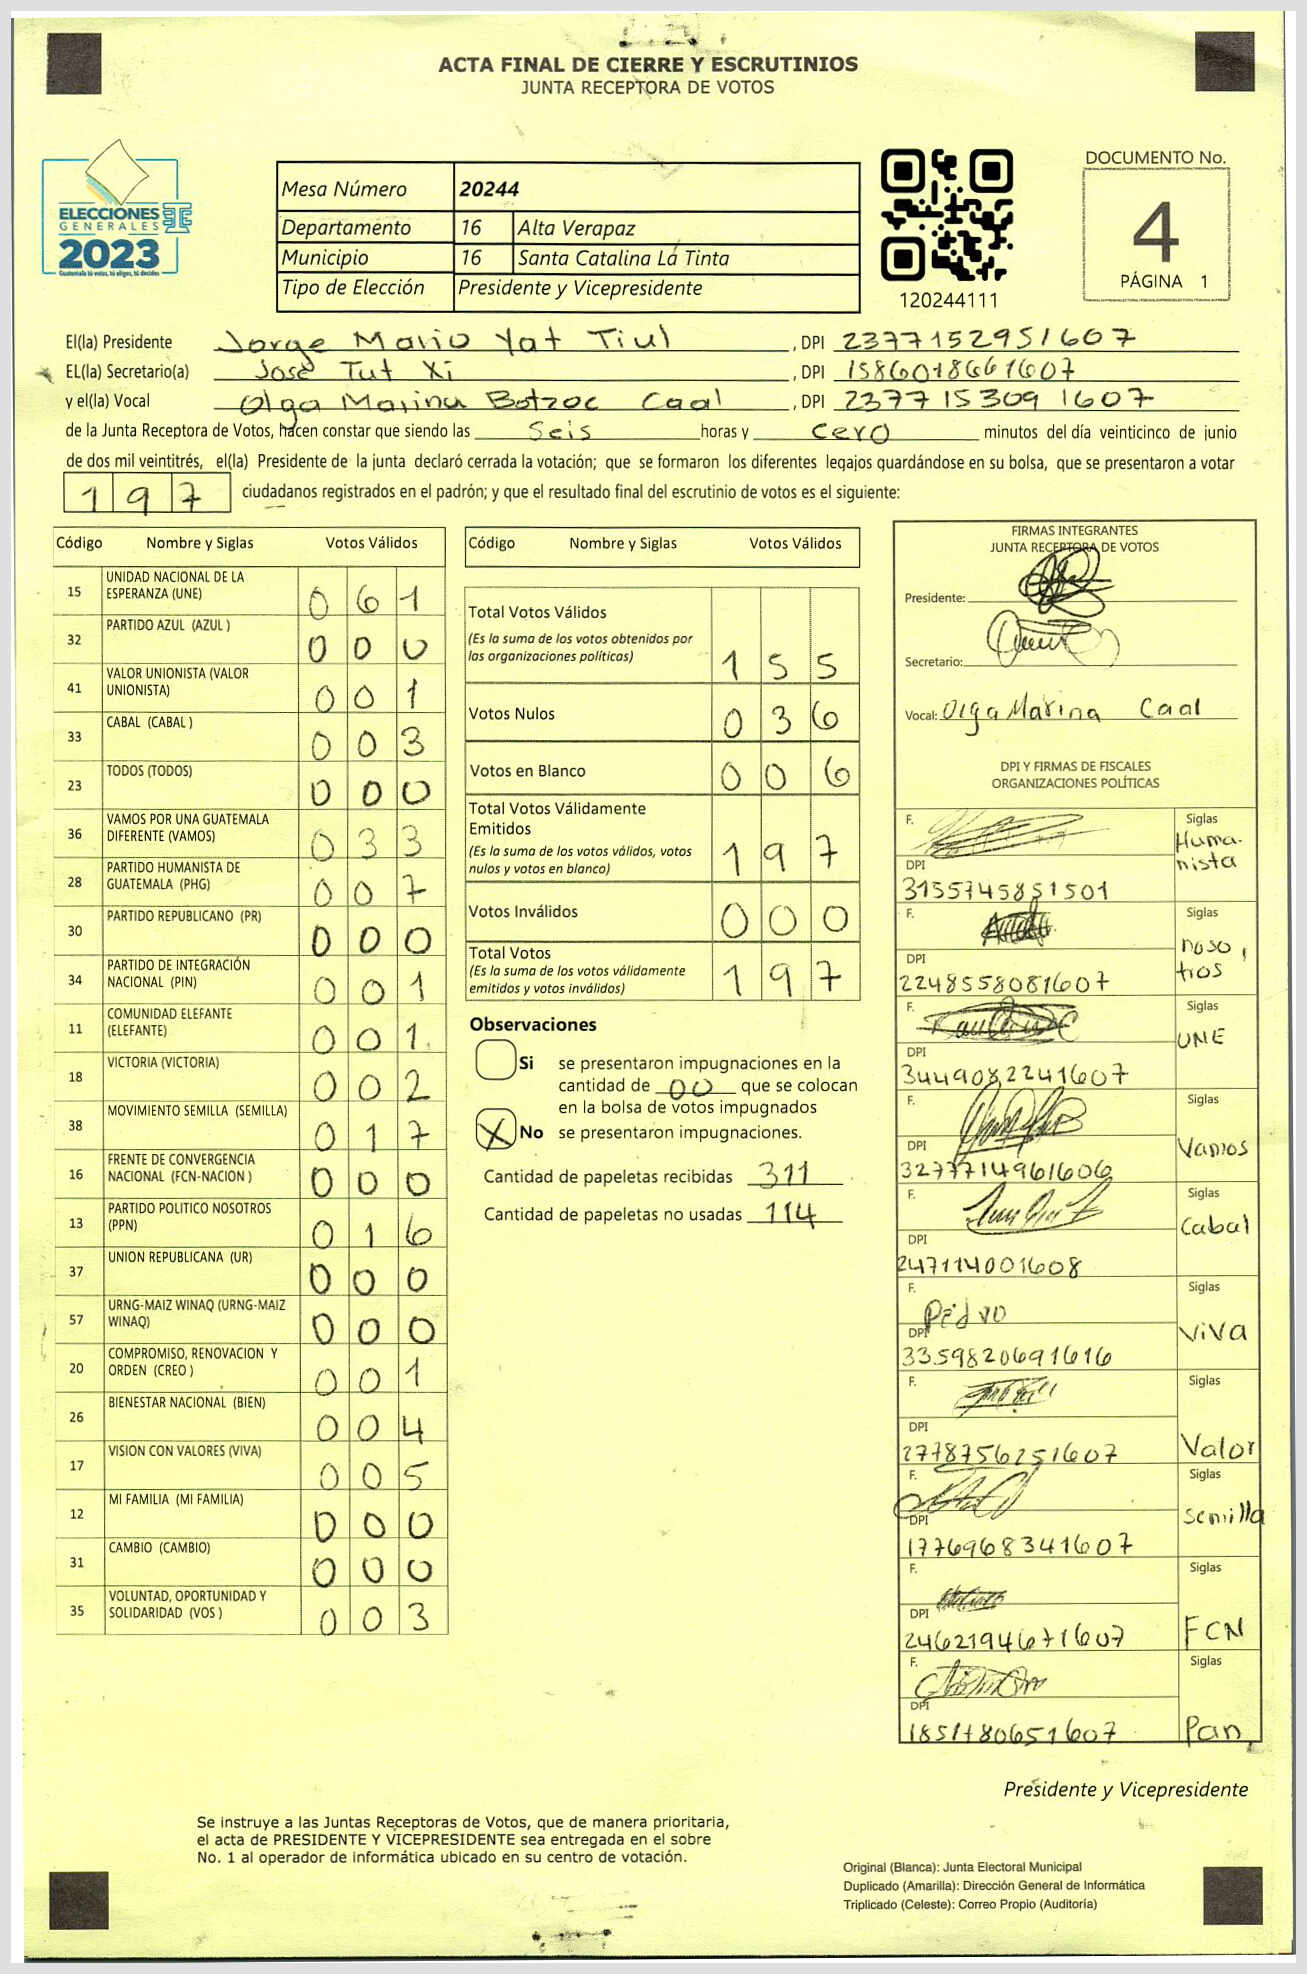 ACTA FINAL DE CIERRE Y ESCRUTINIOS
JUNTA RECEPTORA DE VOTOS
ELECCIONES
GENERALES
2023
Guatemala tú votas, tú eliges, tú decides
Mesa Número 20244
Departamento 16 Alta Verapaz
Municipio 16 Santa Catalina La Tinta
Tipo de Elección Presidente y Vicepresidente
120244111
DOCUMENTO No.
4
PÁGINA 1
El(la) Presidente Jorge Mario Yat Tiul, DPI 2377152951607
EL(la) Secretario(a) José Tut Xi, DPI 1586018661607
y el(la) Vocal Olga Marina Botzoc Caal, DPI 2377153091607
de la Junta Receptora de Votos, hacen constar que siendo las seis horas y cero minutos del día veinticinco de junio
de dos mil veintitrés, el(la) Presidente de la junta declaró cerrada la votación; que se formaron los diferentes legajos guardándose en su bolsa, que se presentaron a votar
197 ciudadanos registrados en el padrón; y que el resultado final del escrutinio de votos es el siguiente:
Código Nombre y Siglas Votos Válidos
15 UNIDAD NACIONAL DE LA ESPERANZA (UNE) 061
32 PARTIDO AZUL (AZUL ) 000
41 VALOR UNIONISTA (VALOR UNIONISTA) 001
33 CABAL (CABAL ) 003
23 TODOS (TODOS) 000
36 VAMOS POR UNA GUATEMALA DIFERENTE (VAMOS) 033
28 PARTIDO HUMANISTA DE GUATEMALA (PHG) 007
30 PARTIDO REPUBLICANO (PR) 000
34 PARTIDO DE INTEGRACIÓN NACIONAL (PIN) 001
11 COMUNIDAD ELEFANTE (ELEFANTE) 001
18 VICTORIA (VICTORIA) 002
38 MOVIMIENTO SEMILLA (SEMILLA) 017
16 FRENTE DE CONVERGENCIA NACIONAL (FCN-NACION ) 000
13 PARTIDO POLITICO NOSOTROS (PPN) 016
37 UNION REPUBLICANA (UR) 000
57 URNG-MAIZ WINAQ (URNG-MAIZ WINAQ) 000
20 COMPROMISO, RENOVACION Y ORDEN (CREO ) 001
26 BIENESTAR NACIONAL (BIEN) 004
17 VISION CON VALORES (VIVA) 005
12 MI FAMILIA (MI FAMILIA) 000
31 CAMBIO (CAMBIO) 000
35 VOLUNTAD, OPORTUNIDAD Y SOLIDARIDAD (VOS ) 003
Código Nombre y Siglas Votos Válidos
Total Votos Válidos
(Es la suma de los votos obtenidos por
las organizaciones políticas) 155
Votos Nulos 036
Votos en Blanco 006
Total Votos Válidamente
Emitidos
(Es la suma de los votos válidos, votos
nulos y votos en blanco) 197
Votos Inválidos 000
Total Votos
(Es la suma de los votos válidamente
emitidos y votos inválidos) 197
Observaciones
Si se presentaron impugnaciones en la
cantidad de 00 que se colocan
en la bolsa de votos impugnados
X No se presentaron impugnaciones.
Cantidad de papeletas recibidas 311
Cantidad de papeletas no usadas 114
FIRMAS INTEGRANTES
JUNTA RECEPTORA DE VOTOS
Presidente:
Secretario:
Vocal: Olga Marina Caal
DPI Y FIRMAS DE FISCALES
ORGANIZACIONES POLÍTICAS
F. Siglas
Huma-
nista
DPI
3155745851501
F. Siglas
noso
tros
DPI
2248558081607
F. Siglas
UNE
DPI
3449082241607
F. Siglas
Vamos
DPI
3277714961606
F. Siglas
Cabal
DPI
247114001608
F. Siglas
Pedro
VIVA
DPI
3359820691616
F. Siglas
DPI
Valor
2778756251607
F. Siglas
Semilla
DPI
1776968341607
F. Siglas
DPI
FCN
2462194671607
F. Siglas
DPI
Pan
1851780651607
Presidente y Vicepresidente
Se instruye a las Juntas Receptoras de Votos, que de manera prioritaria,
el acta de PRESIDENTE Y VICEPRESIDENTE sea entregada en el sobre
No. 1 al operador de informática ubicado en su centro de votación.
Original (Blanca): Junta Electoral Municipal
Duplicado (Amarilla): Dirección General de Informática
Triplicado (Celeste): Correo Propio (Auditoría)